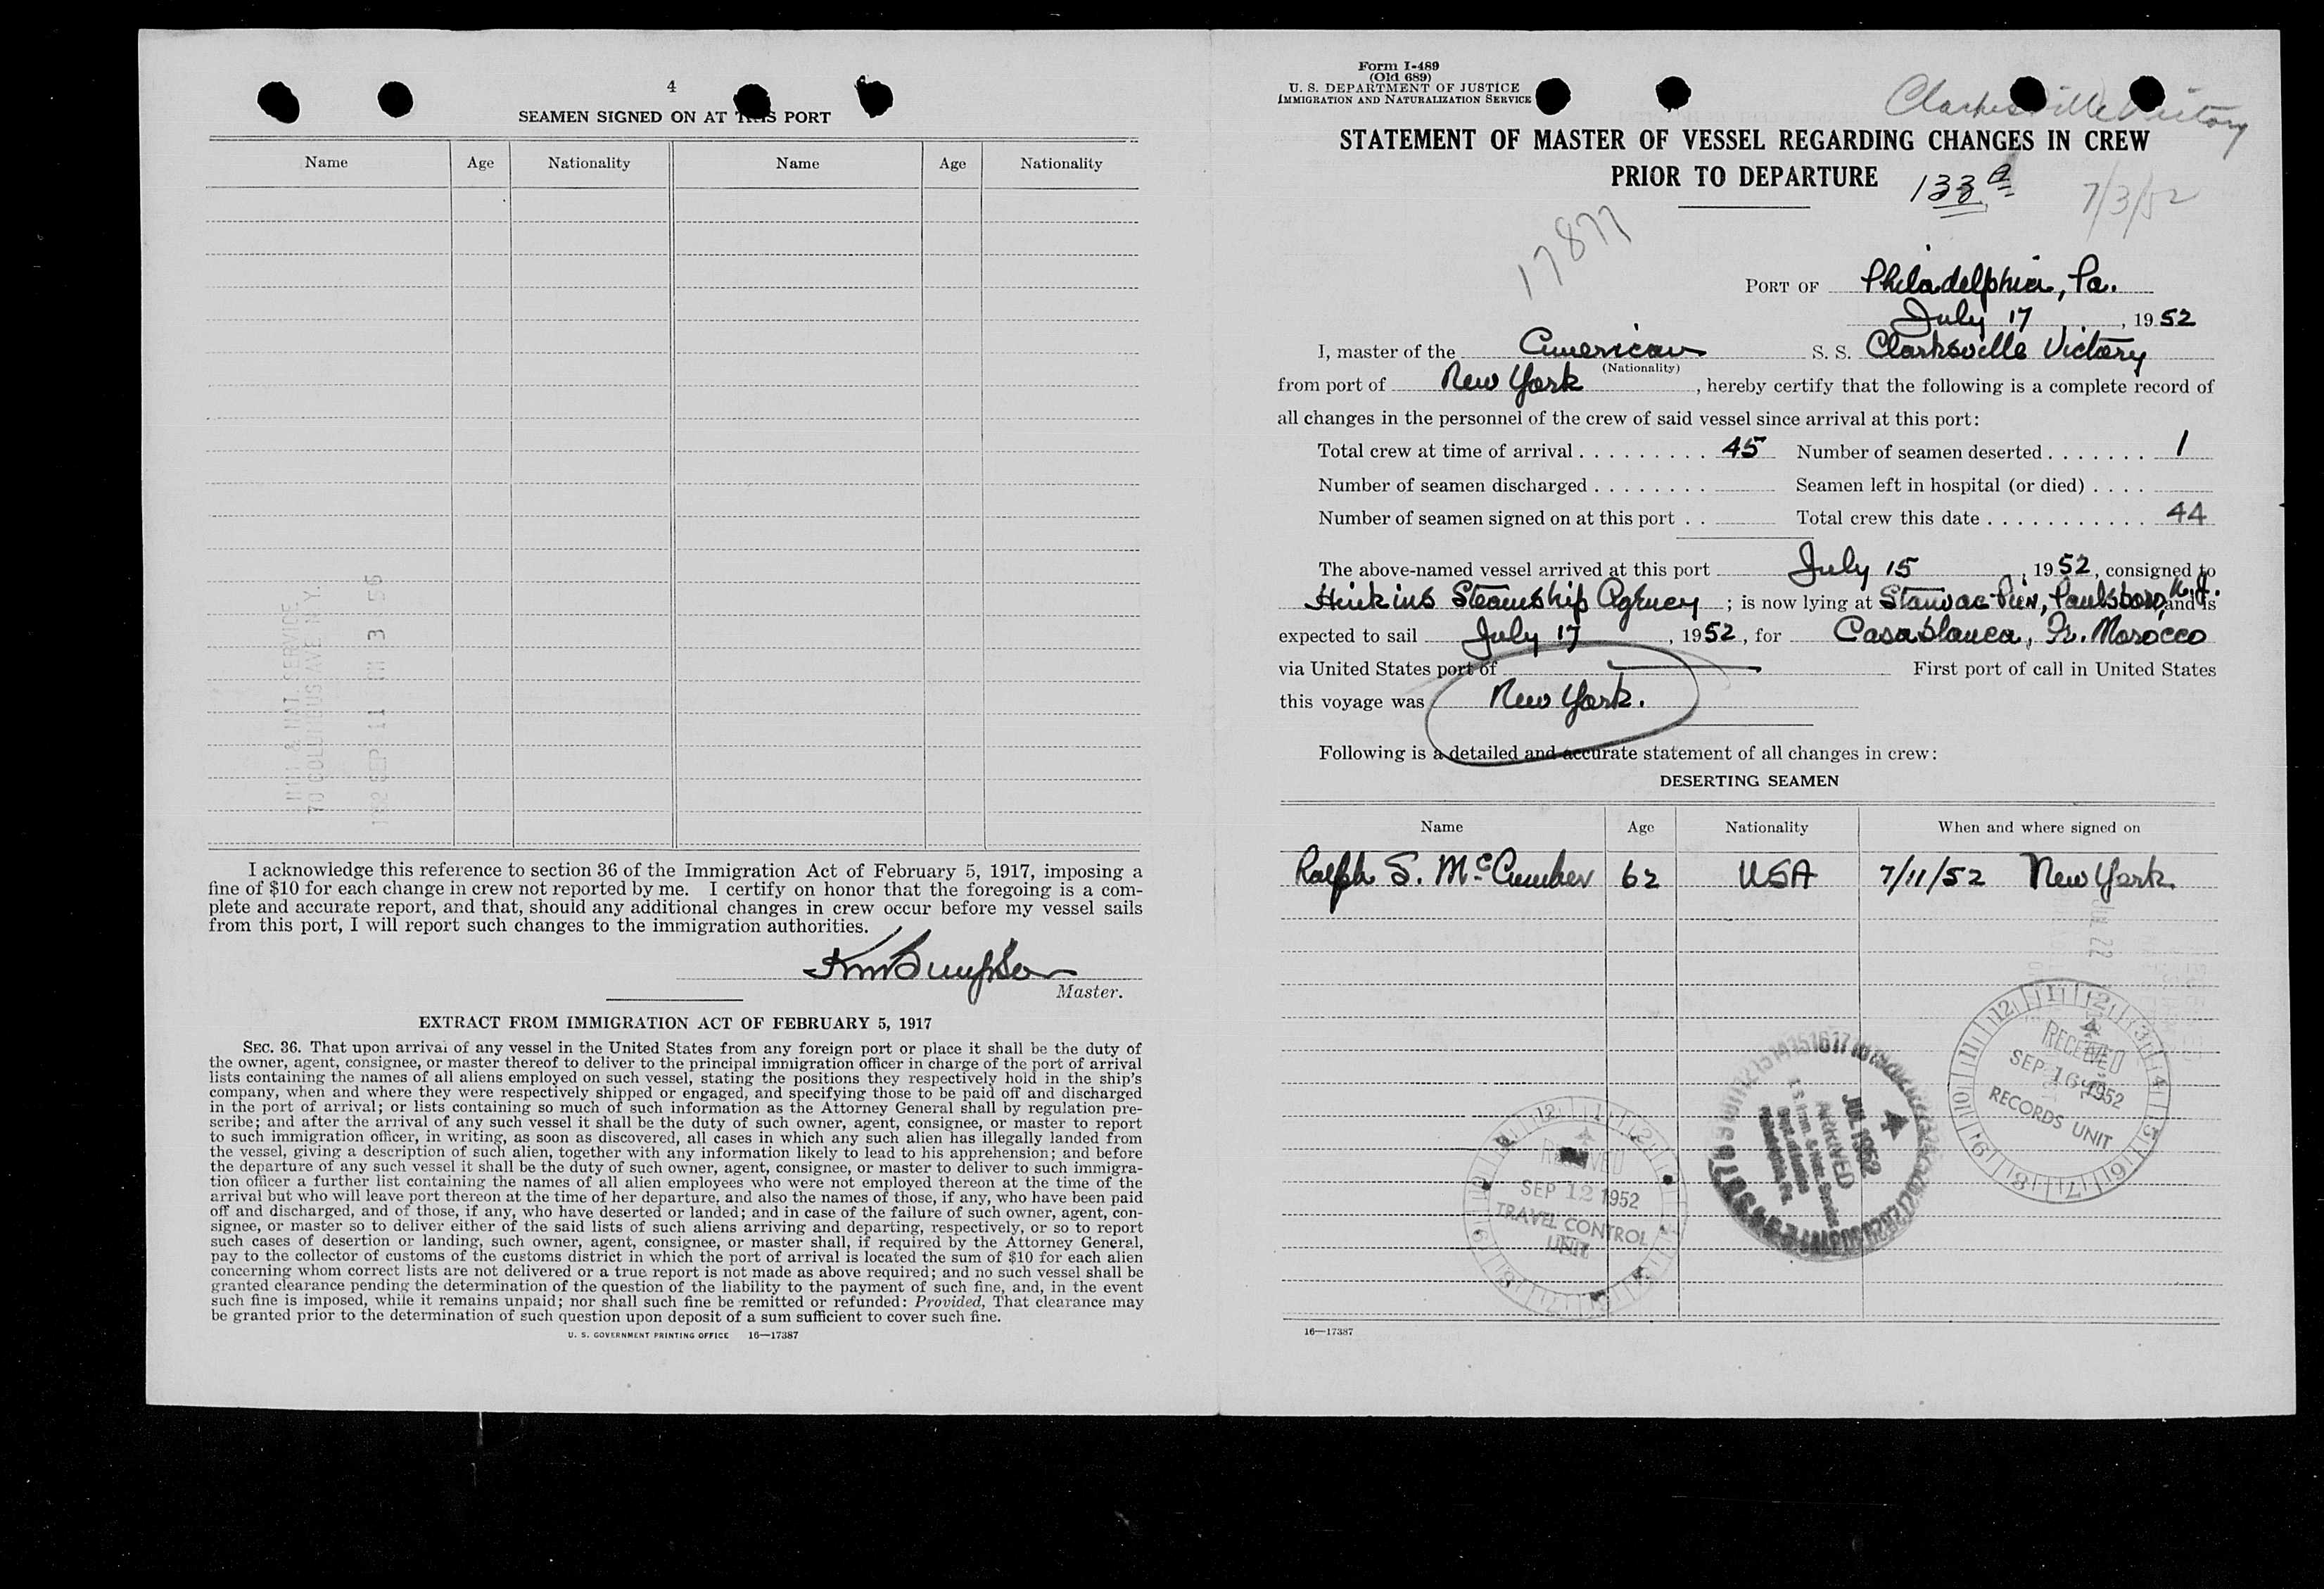 4
SEAMEN SIGNED ON AT THIS PORT
Name Age Nationality Name Age Nationality
IMM & NAT. SERVICE
70 COLUMBUS AVE. N.Y.
1952 SEP 11 3 56
I acknowledge this reference to section 36 of the Immigration Act of February 5, 1917, imposing a
fine of $10 for each change in crew not reported by me. I certify on honor that the foregoing is a com-
plete and accurate report, and that, should any additional changes in crew occur before my vessel sails
from this port, I will report such changes to the immigration authorities.
Master.
EXTRACT FROM IMMIGRATION ACT OF FEBRUARY 5, 1917
SEC. 36. That upon arrival of any vessel in the United States from any foreign port or place it shall be the duty of
the owner, agent, consignee, or master thereof to deliver to the principal immigration officer in charge of the port of arrival
lists containing the names of all aliens employed on such vessel, stating the positions they respectively hold in the ship's
company, when and where they were respectively shipped or engaged, and specifying those to be paid off and discharged
in the port of arrival; or lists containing so much of such information as the Attorney General shall by regulation pre-
scribe; and after the arrival of any such vessel it shall be the duty of such owner, agent, consignee, or master to report
to such immigration officer, in writing, as soon as discovered, all cases in which any such alien has illegally landed from
the vessel, giving a description of such alien, together with any information likely to lead to his apprehension; and before
the departure of any such vessel it shall be the duty of such owner, agent, consignee, or master to deliver to such immigra-
tion officer a further list containing the names of all alien employees who were not employed thereon at the time of the
arrival but who will leave port thereon at the time of her departure, and also the names of those, if any, who have been paid
off and discharged, and of those, if any, who have deserted or landed; and in case of the failure of such owner, agent, con-
signee, or master so to deliver either of the said lists of such aliens arriving and departing, respectively, or so to report
such cases of desertion or landing, such owner, agent, consignee, or master shall, if required by the Attorney General,
pay to the collector of customs of the customs district in which the port of arrival is located the sum of $10 for each alien
concerning whom correct lists are not delivered or a true report is not made as above required; and no such vessel shall be
granted clearance pending the determination of the question of the liability to the payment of such fine, and, in the event
such fine is imposed, while it remains unpaid; nor shall such fine be remitted or refunded: Provided, That clearance may
be granted prior to the determination of such question upon deposit of a sum sufficient to cover such fine.
U. S. GOVERNMENT PRINTING OFFICE 16—17387
Form I-489
(Old 689)
U. S. DEPARTMENT OF JUSTICE
IMMIGRATION AND NATURALIZATION SERVICE
Clarksville Victory
STATEMENT OF MASTER OF VESSEL REGARDING CHANGES IN CREW
PRIOR TO DEPARTURE
133 a
7/3/52
17877
PORT OF Philadelphia, Pa.
July 17, 1952
I, master of the American S. S. Clarksville Victory
(Nationality)
from port of New York, hereby certify that the following is a complete record of
all changes in the personnel of the crew of said vessel since arrival at this port:
Total crew at time of arrival . . . . . . . . . 45 Number of seamen deserted . . . . . . . 1
Number of seamen discharged . . . . . . . . Seamen left in hospital (or died) . . . .
Number of seamen signed on at this port . . Total crew this date . . . . . . . . . . . 44
The above-named vessel arrived at this port July 15, 1952, consigned to
Hinkins Steamship Agency; is now lying at Stanvac Pier, Paulsboro, N.J. and is
expected to sail July 17, 1952, for Casablanca, Fr. Morocco
via United States port of — First port of call in United States
this voyage was New York.
Following is a detailed and accurate statement of all changes in crew:
DESERTING SEAMEN
Name Age Nationality When and where signed on
Ralph S. McCumber 62 USA 7/11/52 New York
JUL 22
RECEIVED
SEP 16 1952
RECORDS UNIT
JUL 1952
RECEIVED
SEP 12 1952
TRAVEL CONTROL
UNIT
16—17387